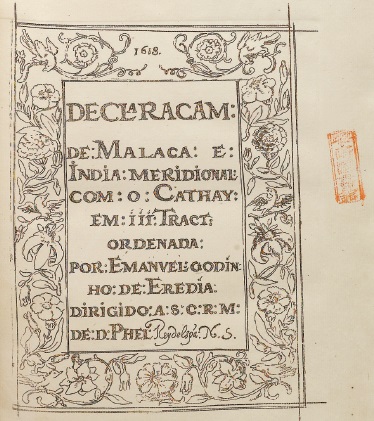 1618.
DECLARACAM:
DE:MALACA: E:
ÍNDIA:MERIDIONAL:
COM:O:CATHAY:
EM:iii:TRACT:
ORDENADA:
POR:EMANVEL:GODIN
HO:DE:EREDIA:
DIRIGIDO:A:S:C:R:M:
DE:D:PHEL. N.S.